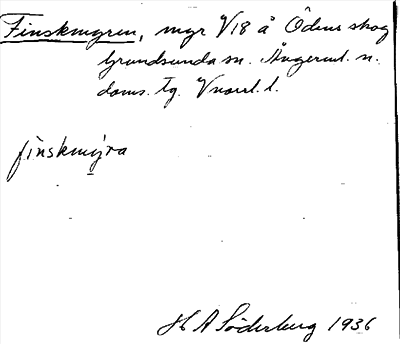 Finskmyren, myr V18 å Ödens skog
Grundsunda sn. Ångerml. n.
doms. tg. Vnorrl. l.
finskmyra
H A Söderberg 1936